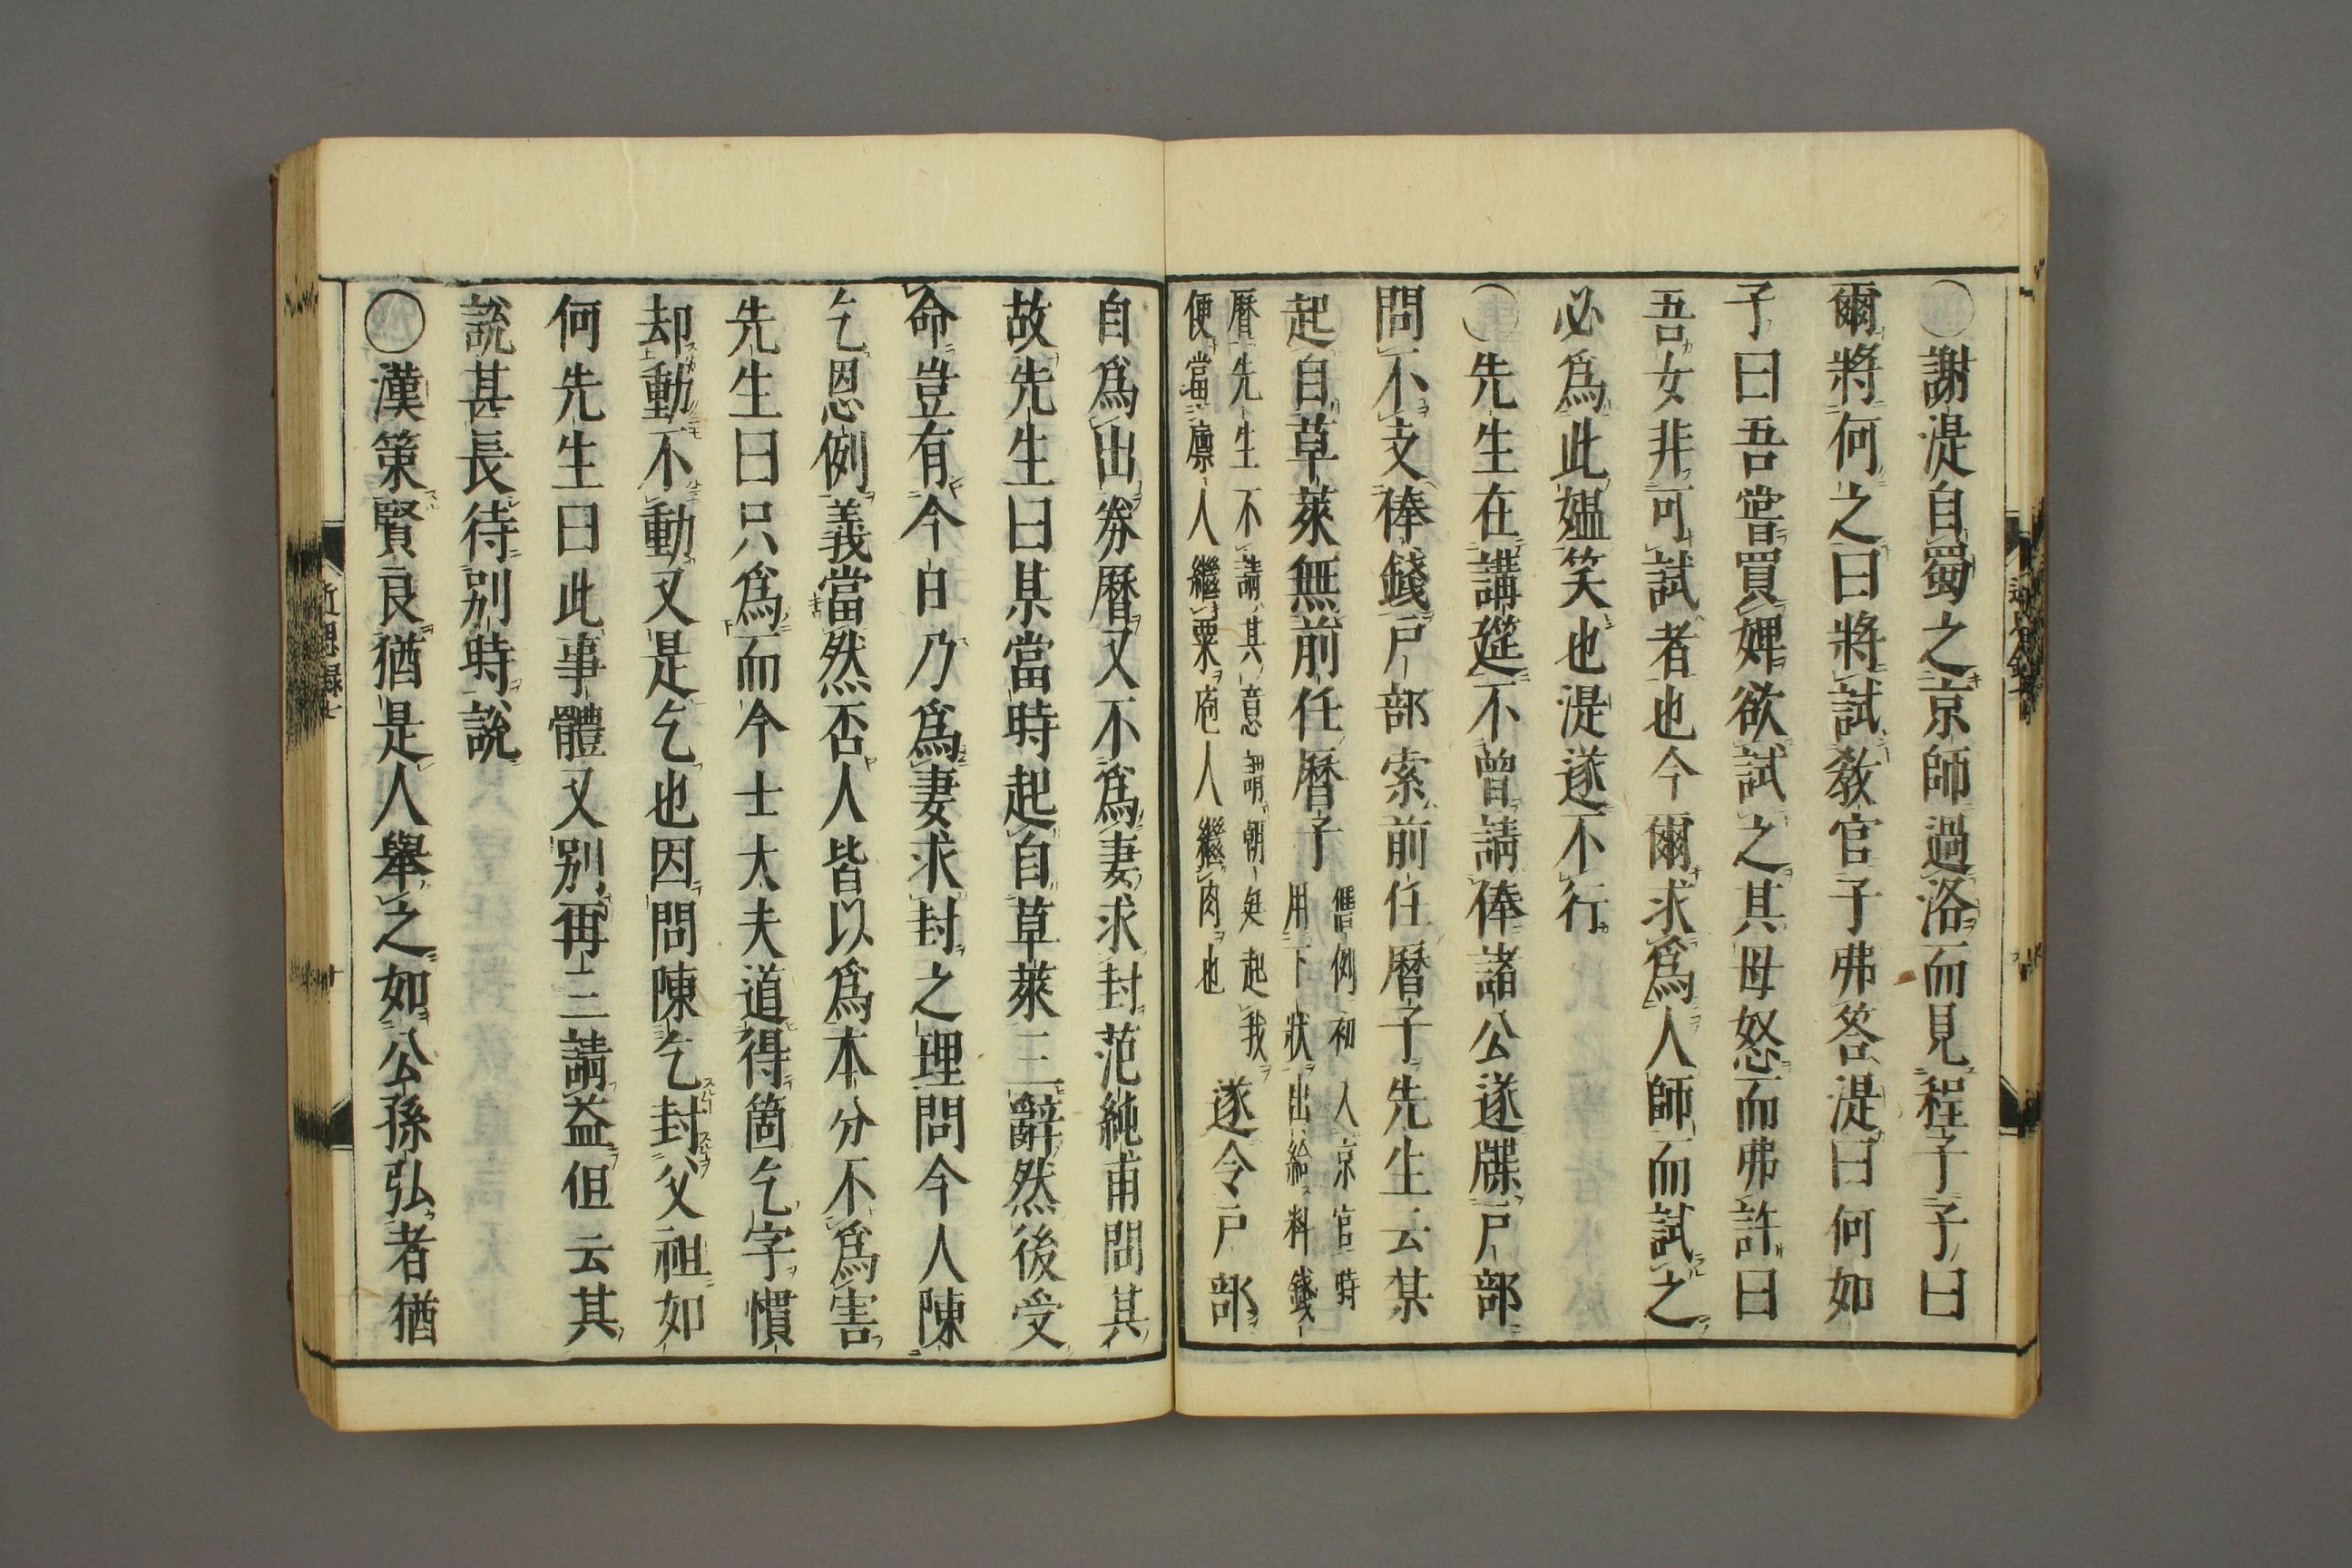 〇謝湜自蜀之京師過洛而見程子子曰
爾將何之曰將試教官子弗答湜曰何如
子曰吾嘗買婢欲試之其母怒而弗許曰
吾女非可試者也今爾求爲人師而試之
必爲此媼笑也湜遂不行
〇先生在講筵不曾請俸諸公遂牒戸部
問不支俸錢戸部索前任曆子先生云某
起自草萊無前任曆子
舊例初入京官時
用下狀出給料錢
曆先生不請其意謂朝廷起我
便當廪人繼粟庖人繼肉也
遂令戸部
自爲出劵曆又不爲妻求封范純甫問其
故先生曰某當時起自草萊三辭然後受
命豈有今日乃爲妻求封之理問今人陳
乞恩例義當然否人皆以爲本分不爲害
先生曰只爲而今士大夫道得箇乞字慣
却動不動又是乞也因問陳乞封父祖如
何先生曰此事體又别再三請益但云其
說甚長待别時說
〇漢策賢良猶是人舉之如公孫弘者猶
近思録七